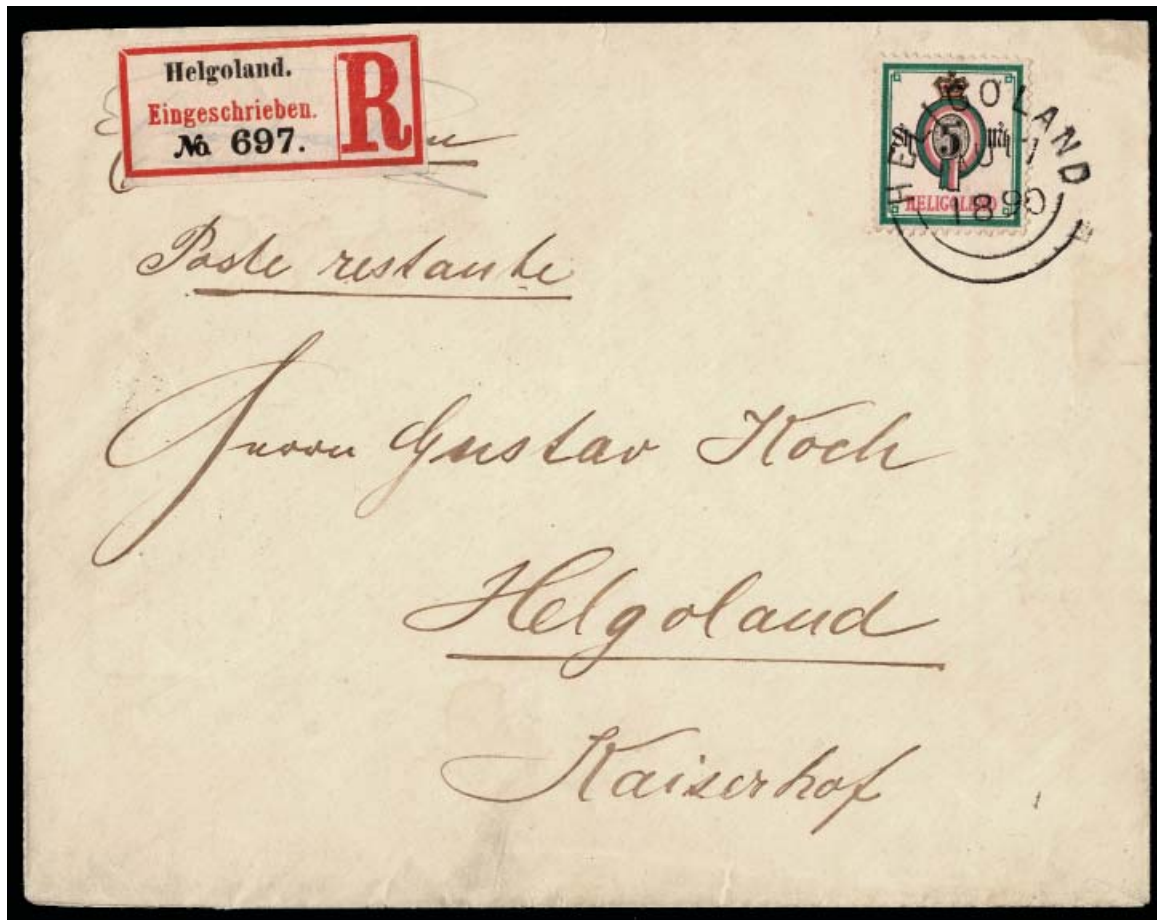 Helgoland.
Eingeschrieben.
№ 697.
R
HELIGOLAND
1890
5
HELIGOLAND
Poste restante
Herrn Gustav Koch
Helgoland
Kaiserhof